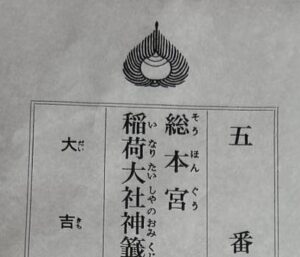 五番
総本宮
そうほんぐう
稲荷大社神籤
いなりたいしやのおみくじ
大吉
だいきち